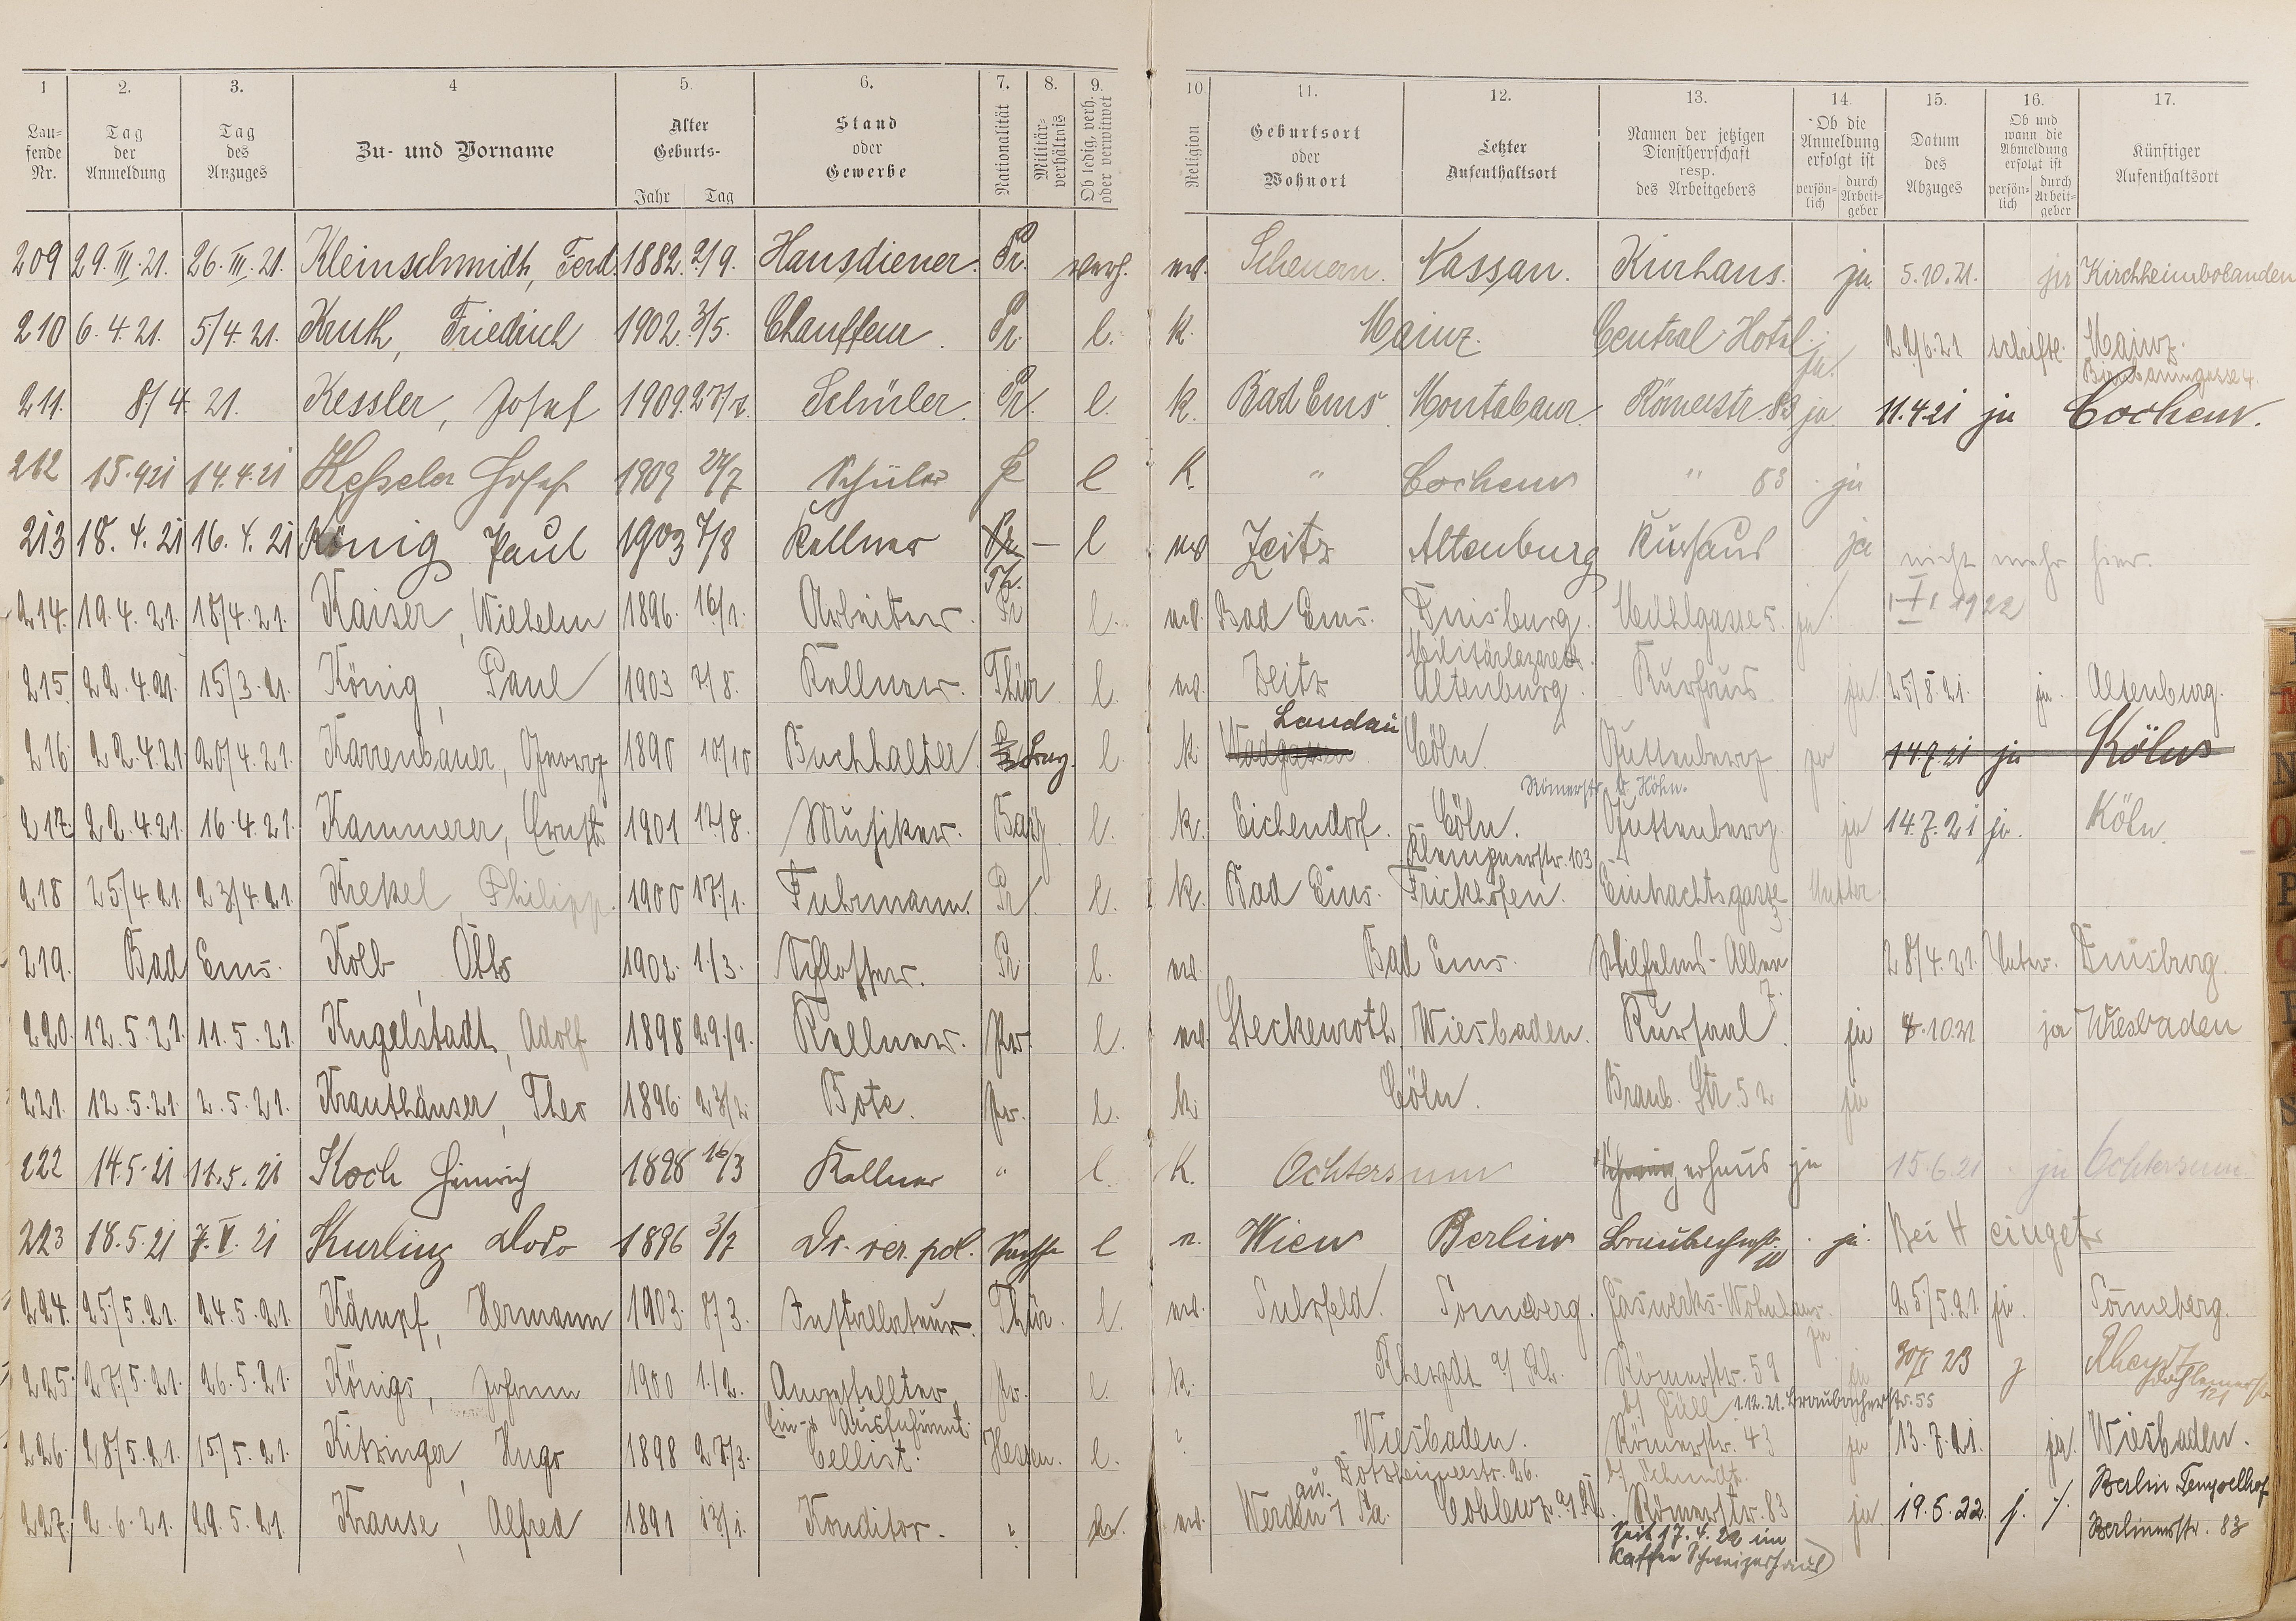 1 2. 3. 4 5. 6. 7. 8. 9. 10. 11. 12. 13. 14. 15. 16. 17.
Laufende Nr. Tag der Anmeldung Tag des Anzuges Zu- und Vorname Alter Geburts- Jahr Tag Stand oder Gewerbe Nationalität Militärverhältnis Ob ledig, verh. oder verwitwet Religion Geburtsort oder Wohnort Letzter Aufenthaltsort Namen der jetzigen Dienstherrschaft resp. des Arbeitgebers Ob die Anmeldung erfolgt ist persönlich durch Arbeitgeber Datum des Abzuges Ob und wann die Abmeldung erfolgt ist persönlich durch Arbeitgeber Künftiger Aufenthaltsort
209 29.III.21. 26.III.21. Kleinschmidt, Ferd. 1882. 2/9. Hausdiener. Pr. verh. ev. Scheuern. Nassau. Kurhaus. ja. 5.10.21. ja Kirchheimbolanden
210 6.4.21. 5/4.21. Kruth, Friedrich 1902. 3/5. Chauffeur. Pr. l. k. Mainz. Central Hotel. ja. 22/6.21 schriftl. Mainz.
211. 8/4 21. Kessler, Josef 1909. 27/7. Schüler. Pr. l. k. Bad Ems. Montabaur. Römerstr. 83 ja. 11.4.21 ja Cochem.
212 15.4.21 14.4.21 Keßeler Josef 1909 27/7 Schüler Pr l K. " Cochem " 83 ja
213 18.4.21 16.4.21 König Paul 1903 7/8 Kellner Pr. — l ev Zeitz Altenburg Kurhaus ja nicht mehr hier.
Th.
214. 19.4.21. 18/4.21. Kaiser, Wilhelm 1896. 16/1. Arbeiter. Pr l. ev. Bad Ems. Duisburg. Mühlgasse 5. ja 1.I.1922
Militärlazarett.
215. 22.4.21. 15/3.21. König, Paul 1903 7/8. Kellner. Thür l. ev. Zeitz Altenburg. Kurhaus ja 25/5.21. ja. Altenburg.
Landau
216 22.4.21. 20/4.21. Karrenbauer, Georg 1890 10/10 Buchhalter. l. k. Wadgassen Cöln. Guttenberg ja 14.7.21 ja Kölns
Römerstr. b. Höhn.
217. 22.4.21. 16.4.21. Kammerer, Ernst 1901 12/8. Musiker. Bay. l. k. Eichendorf. Cöln. Guttenberg. ja 14.7.21 ja. Köln.
Klempnerstr. 103
218 25/4.21. 23/4.21. Krekel, Philipp. 1900 17/1. Fuhrmann. Pr. l. k. Bad Ems. Frickhofen. Eintrachtsgasse 3 Mutter
219. Bad Ems. Kolb, Otto 1902. 1/3. Schlosser. Pr. l. ev. Bad Ems. Wilhelms-Allee 7. 28/4.21. Vater. Duisburg.
220. 12.5.21. 11.5.21. Kugelstadt, Adolf 1898 29/9. Kellner. Pr. l. ev. Steckenroth Wiesbaden. Kursaal. ja 8.10.21 ja Wiesbaden
221. 12.5.21. 2.5.21. Krauthäuser, Theo 1896. 23/2. Bote. Pr. l. k. Cöln. Braub. Str. 52 ja
222 14.5.21 11.5.21 Koch Heinrich 1898 16/3 Kellner " l. K. Ochtersum ja 15.6.21 ja Ochtersum
223 18.5.21 7.V.21 Kurling Dodo 1896 3/7 Dr. rer. pol. l n. Wien Berlin ja. Bei H einget.
224. 25/5.21. 24.5.21. Kämpf, Hermann 1903. 8/3. Installateur. Thür. l. ev. Suhlfeld. Sonneberg. Gaswerks-Wohnhaus. ja 25/5.21 ja. Sonneberg.
225. 27/5.21. 26.5.21. Königs, Johann 1900 1/2. Angestellter Pr. l. k. Rheydt a/Rh. Römerstr. 59 ja 23 Rheydt
Ein- u. Ausfuhramt. 1.12.21. Braubacherstr. 55 121
226. 28/5.21. 15/5.21. Kitzinger, Hugo 1898 27/3. Cellist. Hessen. l. Wiesbaden. Römerstr. 43 ja 13.7.21. ja. Wiesbaden.
Dotzheimerstr. 26. b/ Schmidt. Berlin Tempelhof
227. 2.6.21. 29.5.21. Krause, Alfred 1891 13/1. Konditor. ev. Werdau i/Sa. Coblenz a/Rh. Römerstr. 83 ja. 19.5.22. j. Berlinerstr. 83
seit 17.4.22 im
Kaffee Schweizerhaus